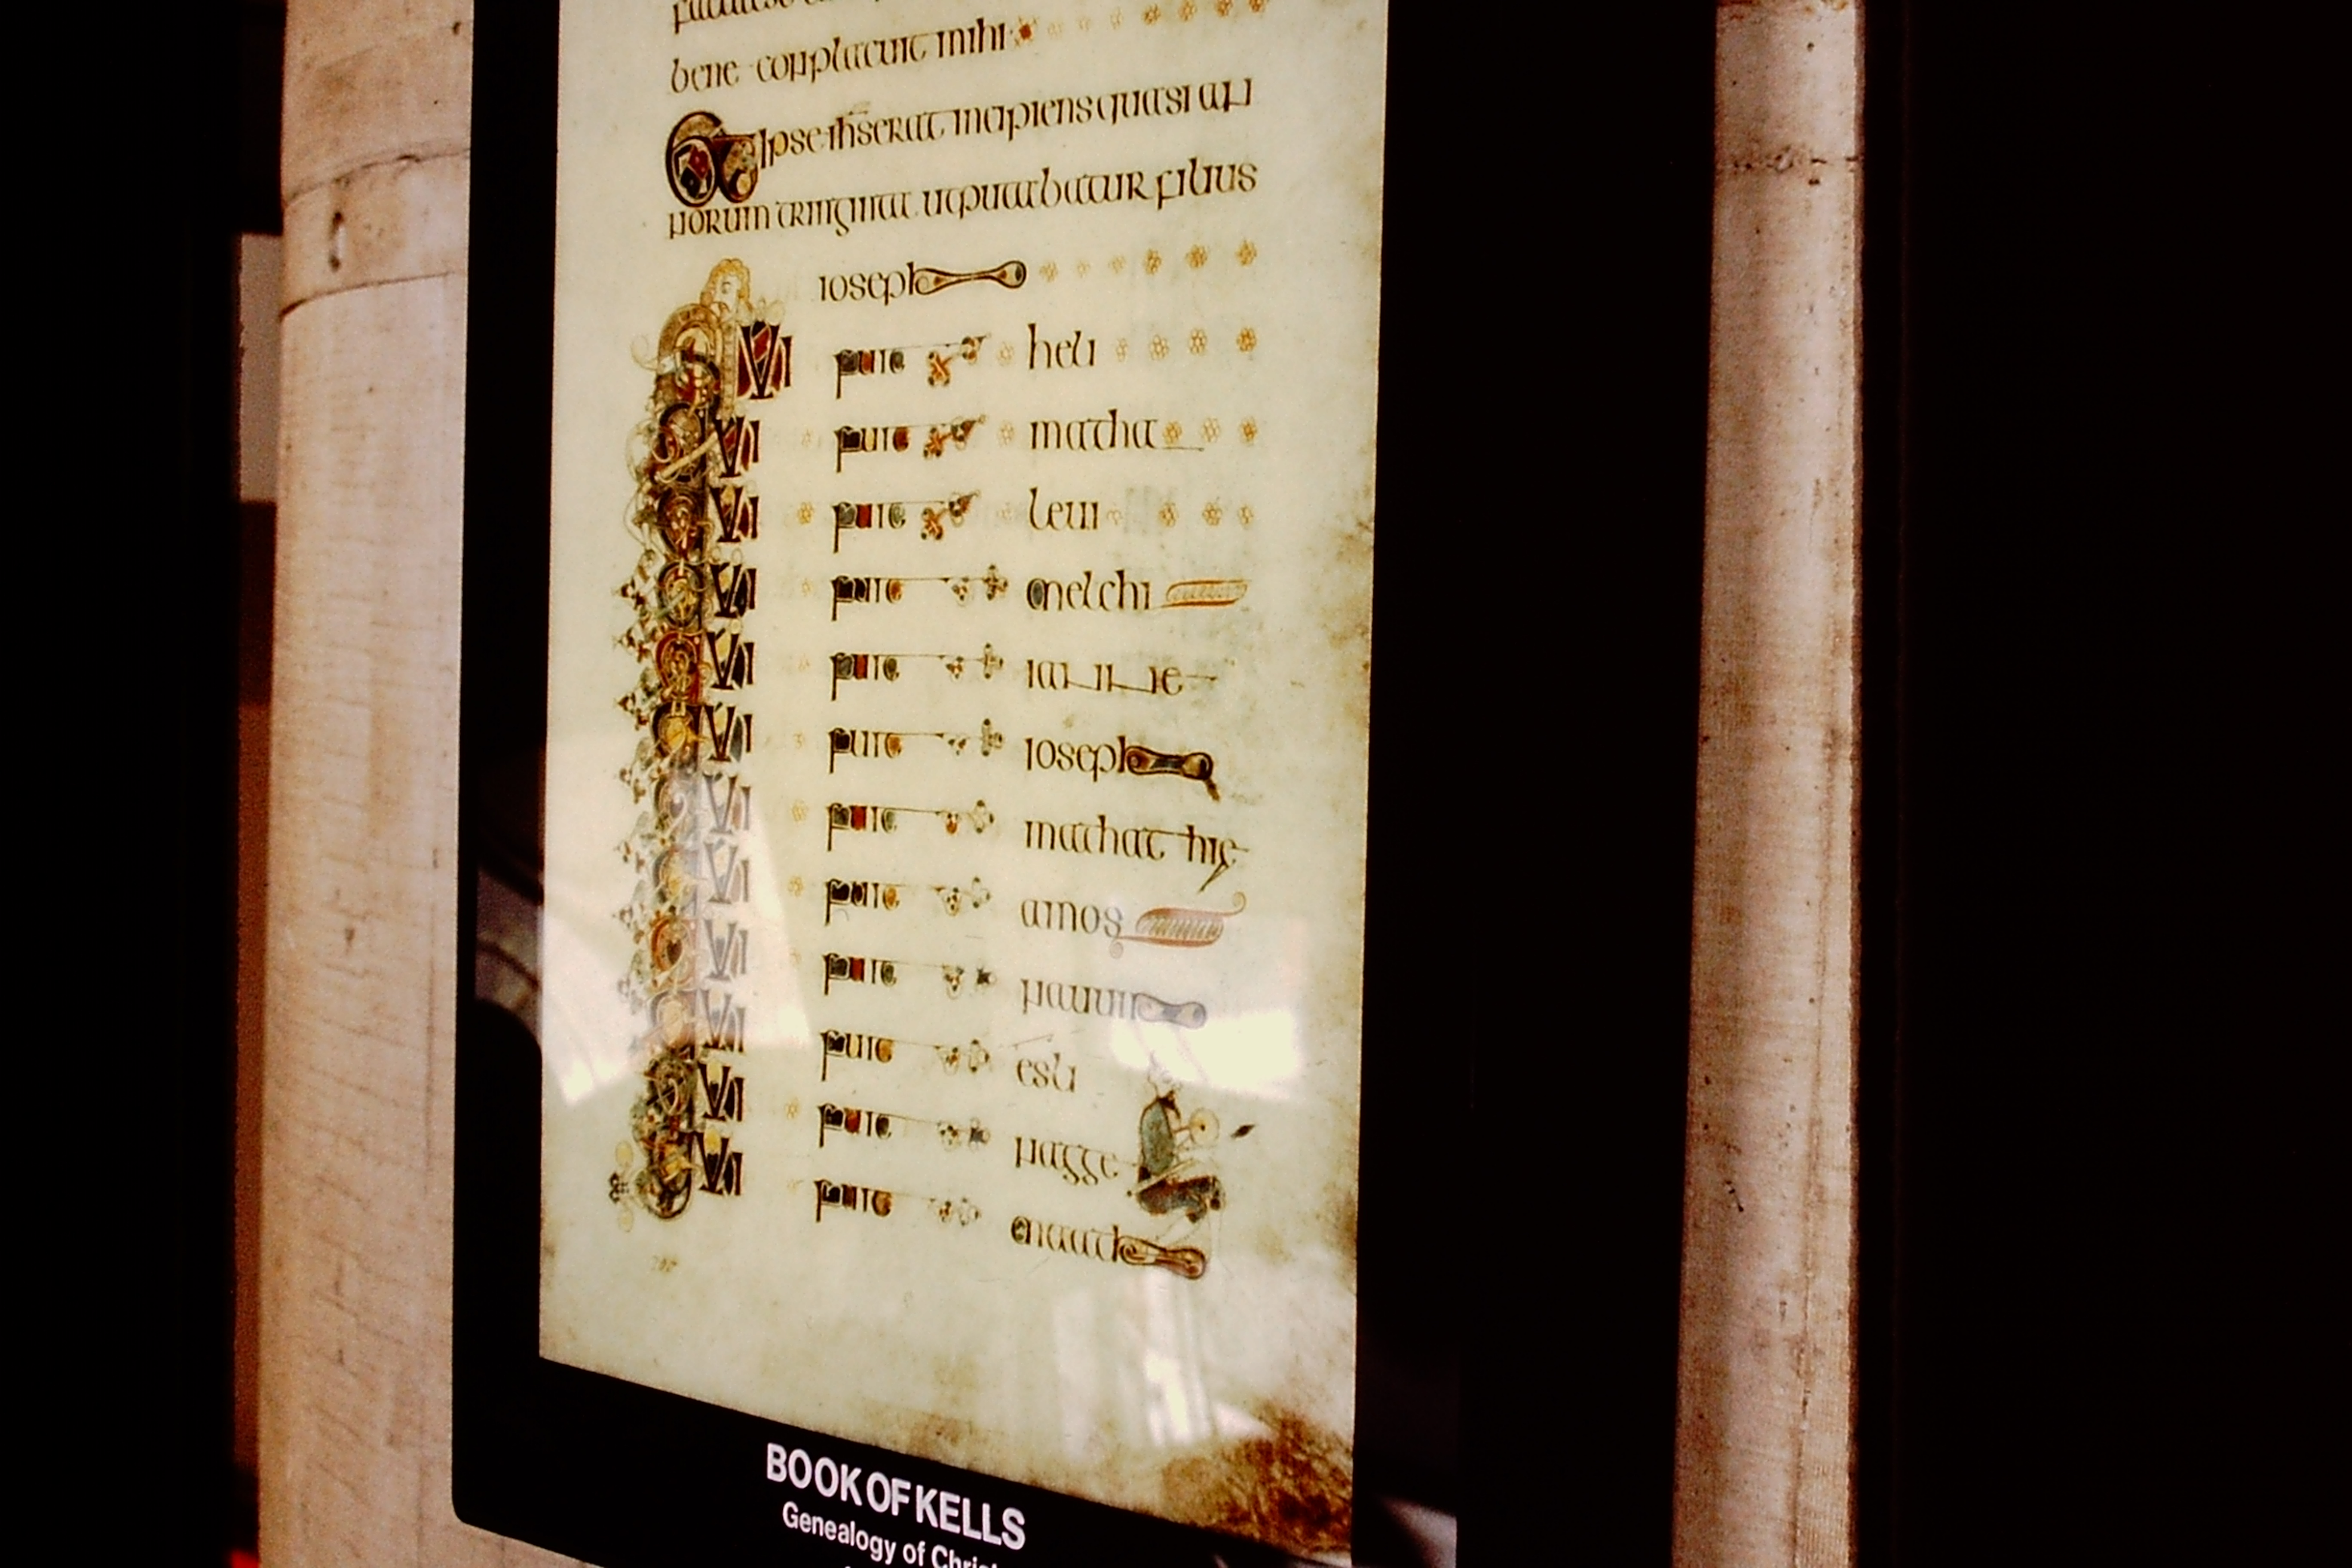 bene complacuit mihi
Et ipse ihs erat incipiens quasi an
norum triginta ut putabatur filius
ioseph
Qui fuit heli
Qui fuit matha
Qui fuit leui
Qui fuit melchi
Qui fuit iannae
Qui fuit ioseph
Qui fuit mathathie
Qui fuit amos
Qui fuit nauum
Qui fuit esli
Qui fuit nagge
Qui fuit maath
BOOK OF KELLS
Genealogy of Christ